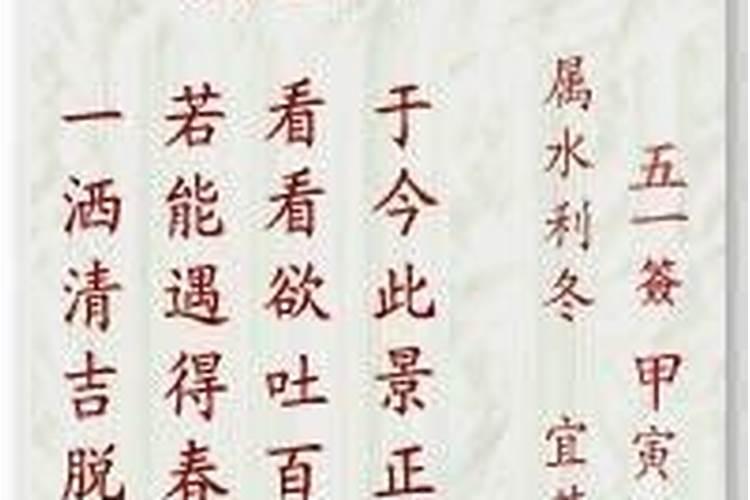 五一簽 甲寅
属水利冬 宜
于今此景正
看看欲吐百
若能遇得春
一洒清吉脱